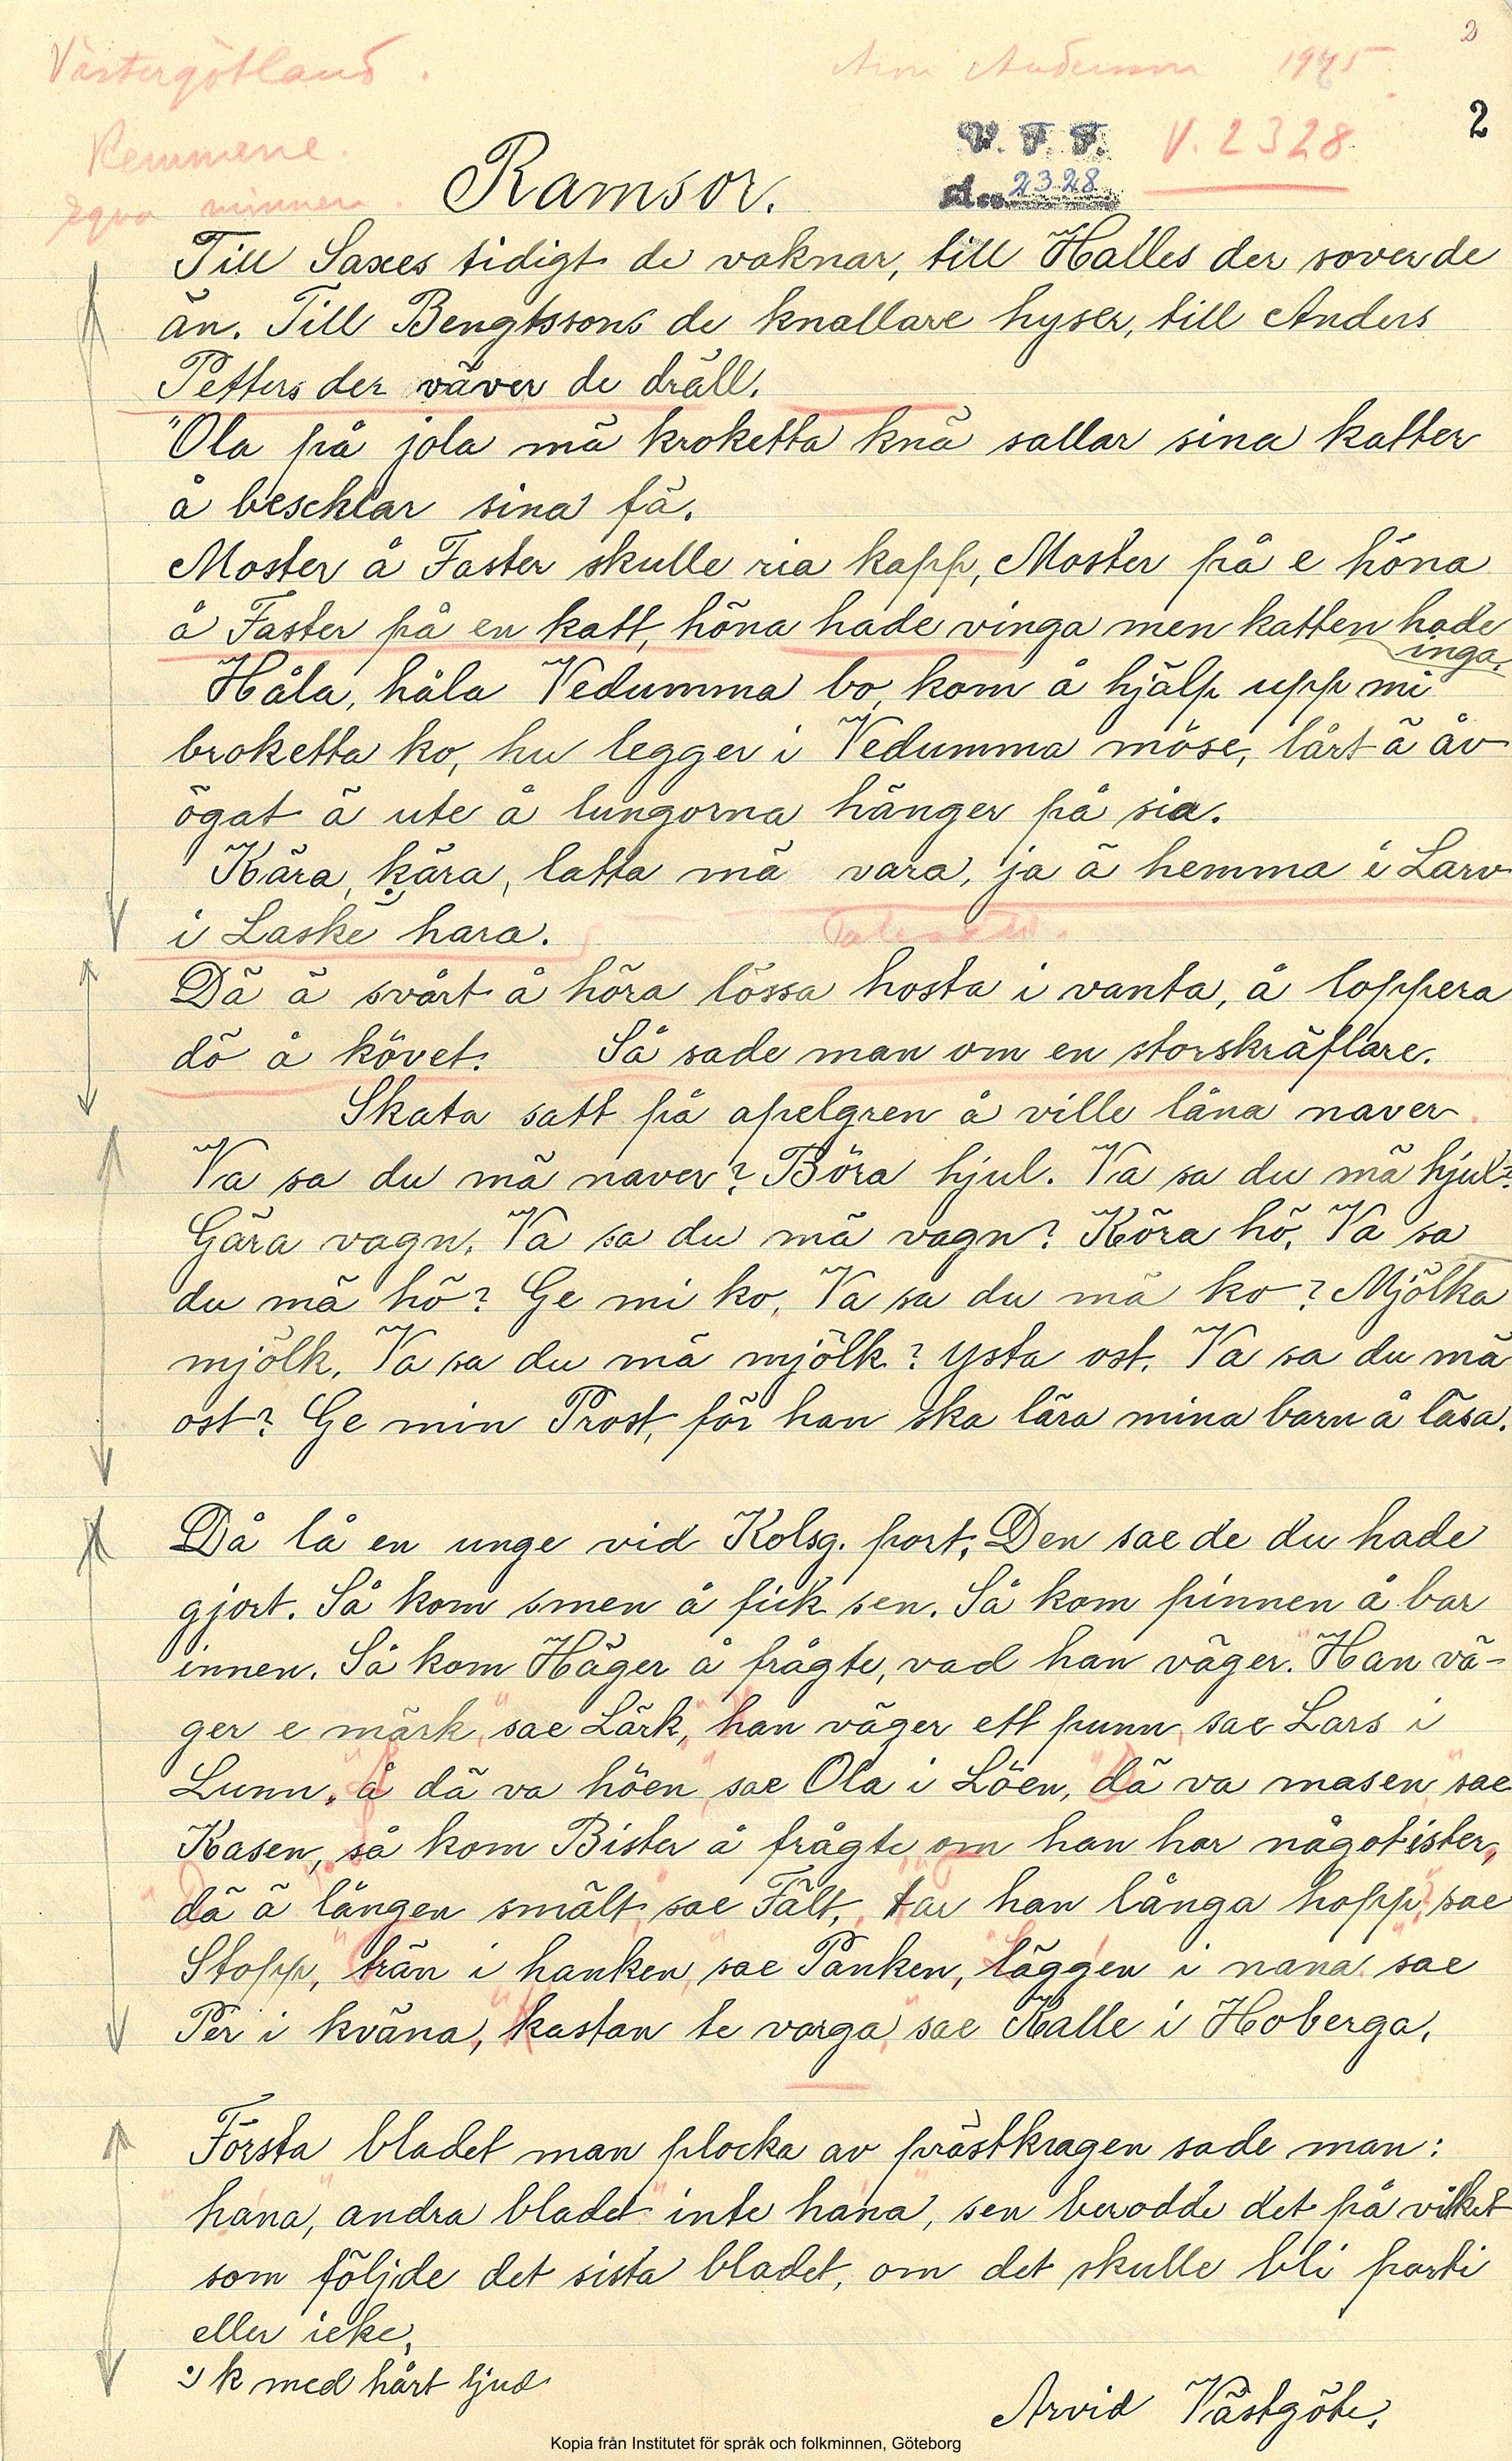 2
Västergötland. 1945
V. F. F. V. 2328 2
Remmene.
2328
Egna minnen. Ramsor.
Till Saxes tidigt de vaknar, till Halles der sover de
än. Till Bengtssons de knallare hyser, till Anders
Petters der väver de dräll.
"Ola på jola mä kroketta knä sallar sina katter
å beschlar sina fä.
Moster å Faster skulle ria kapp, Moster på e höna
å Faster på en katt, höna hade vinga men katten hade
inga.
Håla, håla Vedumma bo, kom å hjälp upp mi
broketta ko, hu legger i Vedumma möse, lårt ä åv
ögat ä ute å lungorna hänger på sia.
Kära, kära, latta mä vara, ja ä hemma i Larv
i Laske hara.
Dä ä svårt å höra lössa hosta i vanta, å loppera
dö å követ. Så sade man om en storskräflare.
Skata satt på apelgren å ville låna naver.
Va sa du mä naver? Böra hjul. Va sa du mä hjul?
Gära vagn. Va sa du mä vagn? Köra hö. Va sa
du mä hö? Ge mi ko. Va sa du mä ko? Mjölka
mjölk. Va sa du mä mjölk? Ysta ost. Va sa du mä
ost? Ge min Prost, för han ska lära mina barn å läsa.
Då lå en unge vid Kolsg. port. Den sae de du hade
gjort. Så kom smen å fick sen. Så kom pinnen å bar
innen. Så kom Häger å frågte, vad han väger. "Han vä-
ger e märk," sae Lärk, "han väger ett punn, sae Lars i
Lunn. "å dä va höen," sae Ola i Löen, "dä va masen" sae
Kasen, så kom Bister å frågte om han har något ister,
"dä ä längen smält" sae Fält, "tar han långa hopp," sae
Stopp, "trän i hanken," sae Panken, "läggen i nana" sae
Per i kväna, "kastan te varga," sae Kalle i Hoberga.
Första bladet man plocka av prästkragen sade man:
"häna", andra bladet "inte häna", sen berodde det på vilket
som följde det sista bladet, om det skulle bli parti
eller icke.
k med hårt ljud
Arvid Västgöte.
Kopia från Institutet för språk och folkminnen, Göteborg